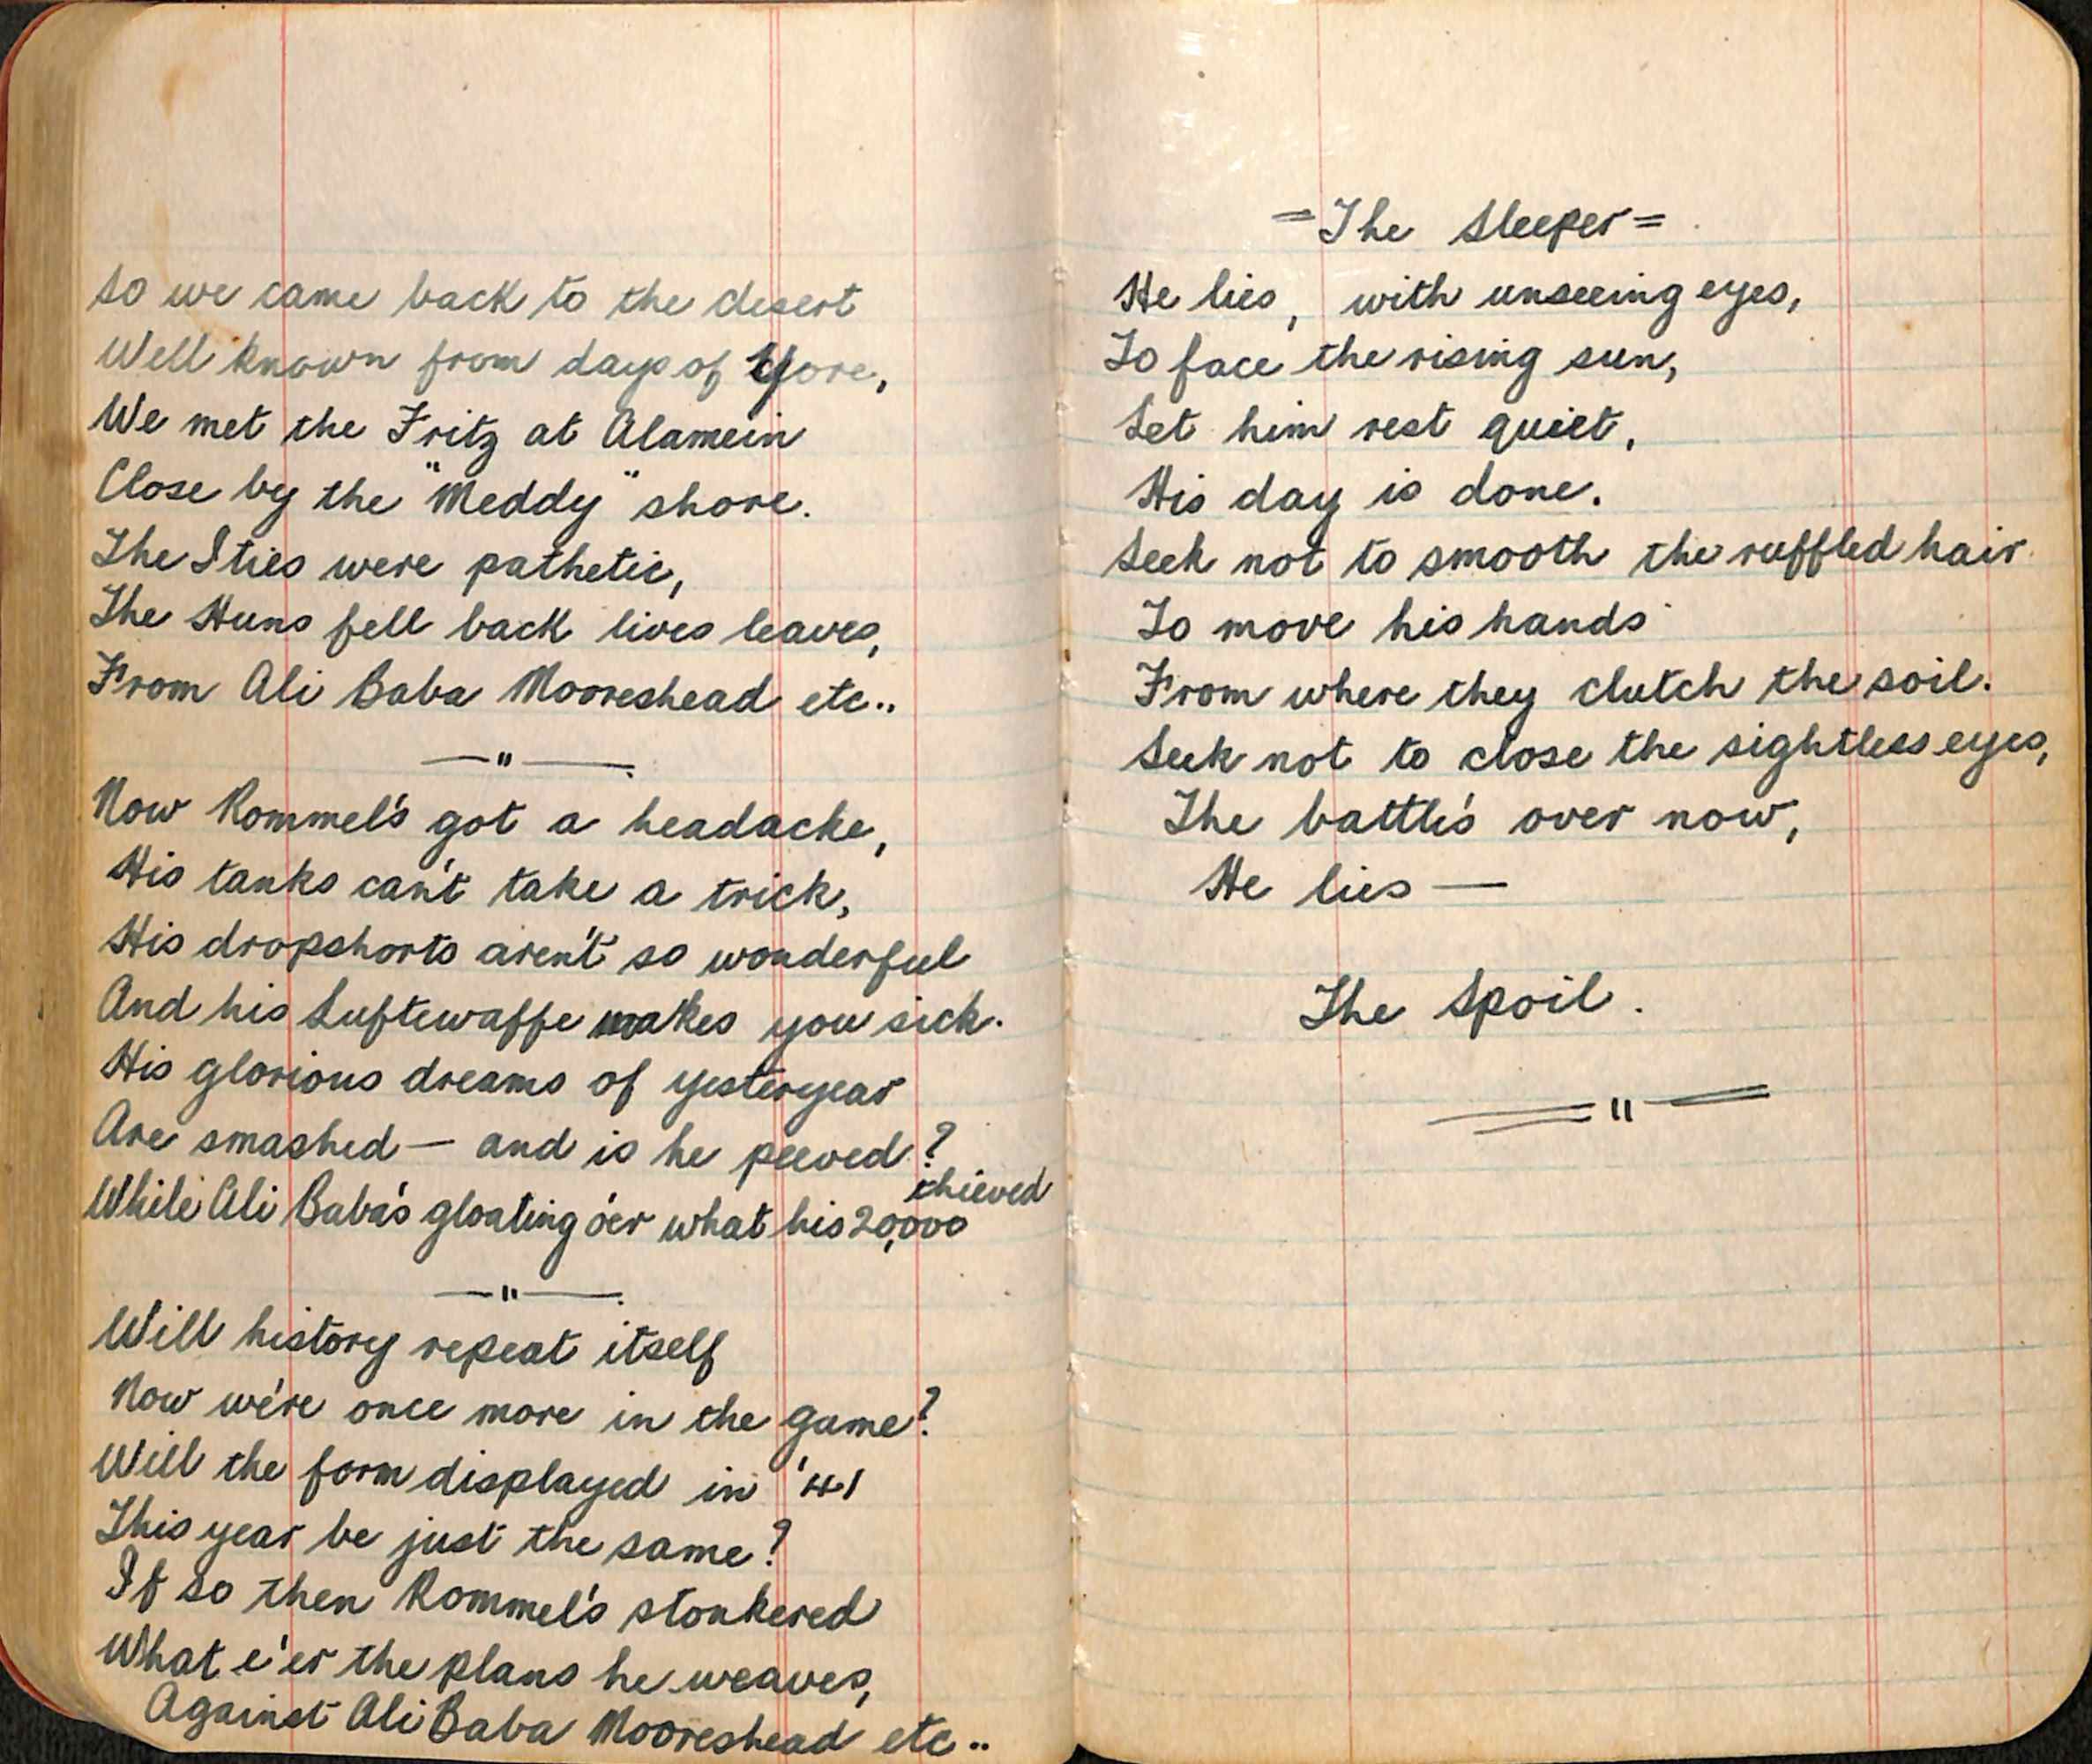 So we came back to the desert
Well known from days of Yore,
We met the Fritz at Alamein
Close by the "Meddy" shore.
The Ities were pathetic,
The Huns fell back lives leaves,
From Ali Baba Mooreshead etc..
— " —.
Now Rommel's got a headacke,
His tanks can't take a trick,
His dropshorts aren't so wonderful
And his Luftewaffe makes you sick.
His glorious dreams of yesteryear
Are smashed — and is he peeved?
While Ali Baba's gloating o'er what his 20,000 thieved
— " —.
Will history repeat itself
Now we're once more in the game?
Will the form displayed in '41
This year be just the same?
If so then Rommel's stonkered
What e'er the plans he weaves,
Against Ali Baba Mooreshead etc..
= The Sleeper =
He lies, with unseeing eyes,
To face the rising sun,
Let him rest quiet,
His day is done.
Seek not to smooth the ruffled hair
To move his hands
From where they clutch the soil.
Seek not to close the sightless eyes,
The battle's over now,
He lies —
The Spoil.
= " =